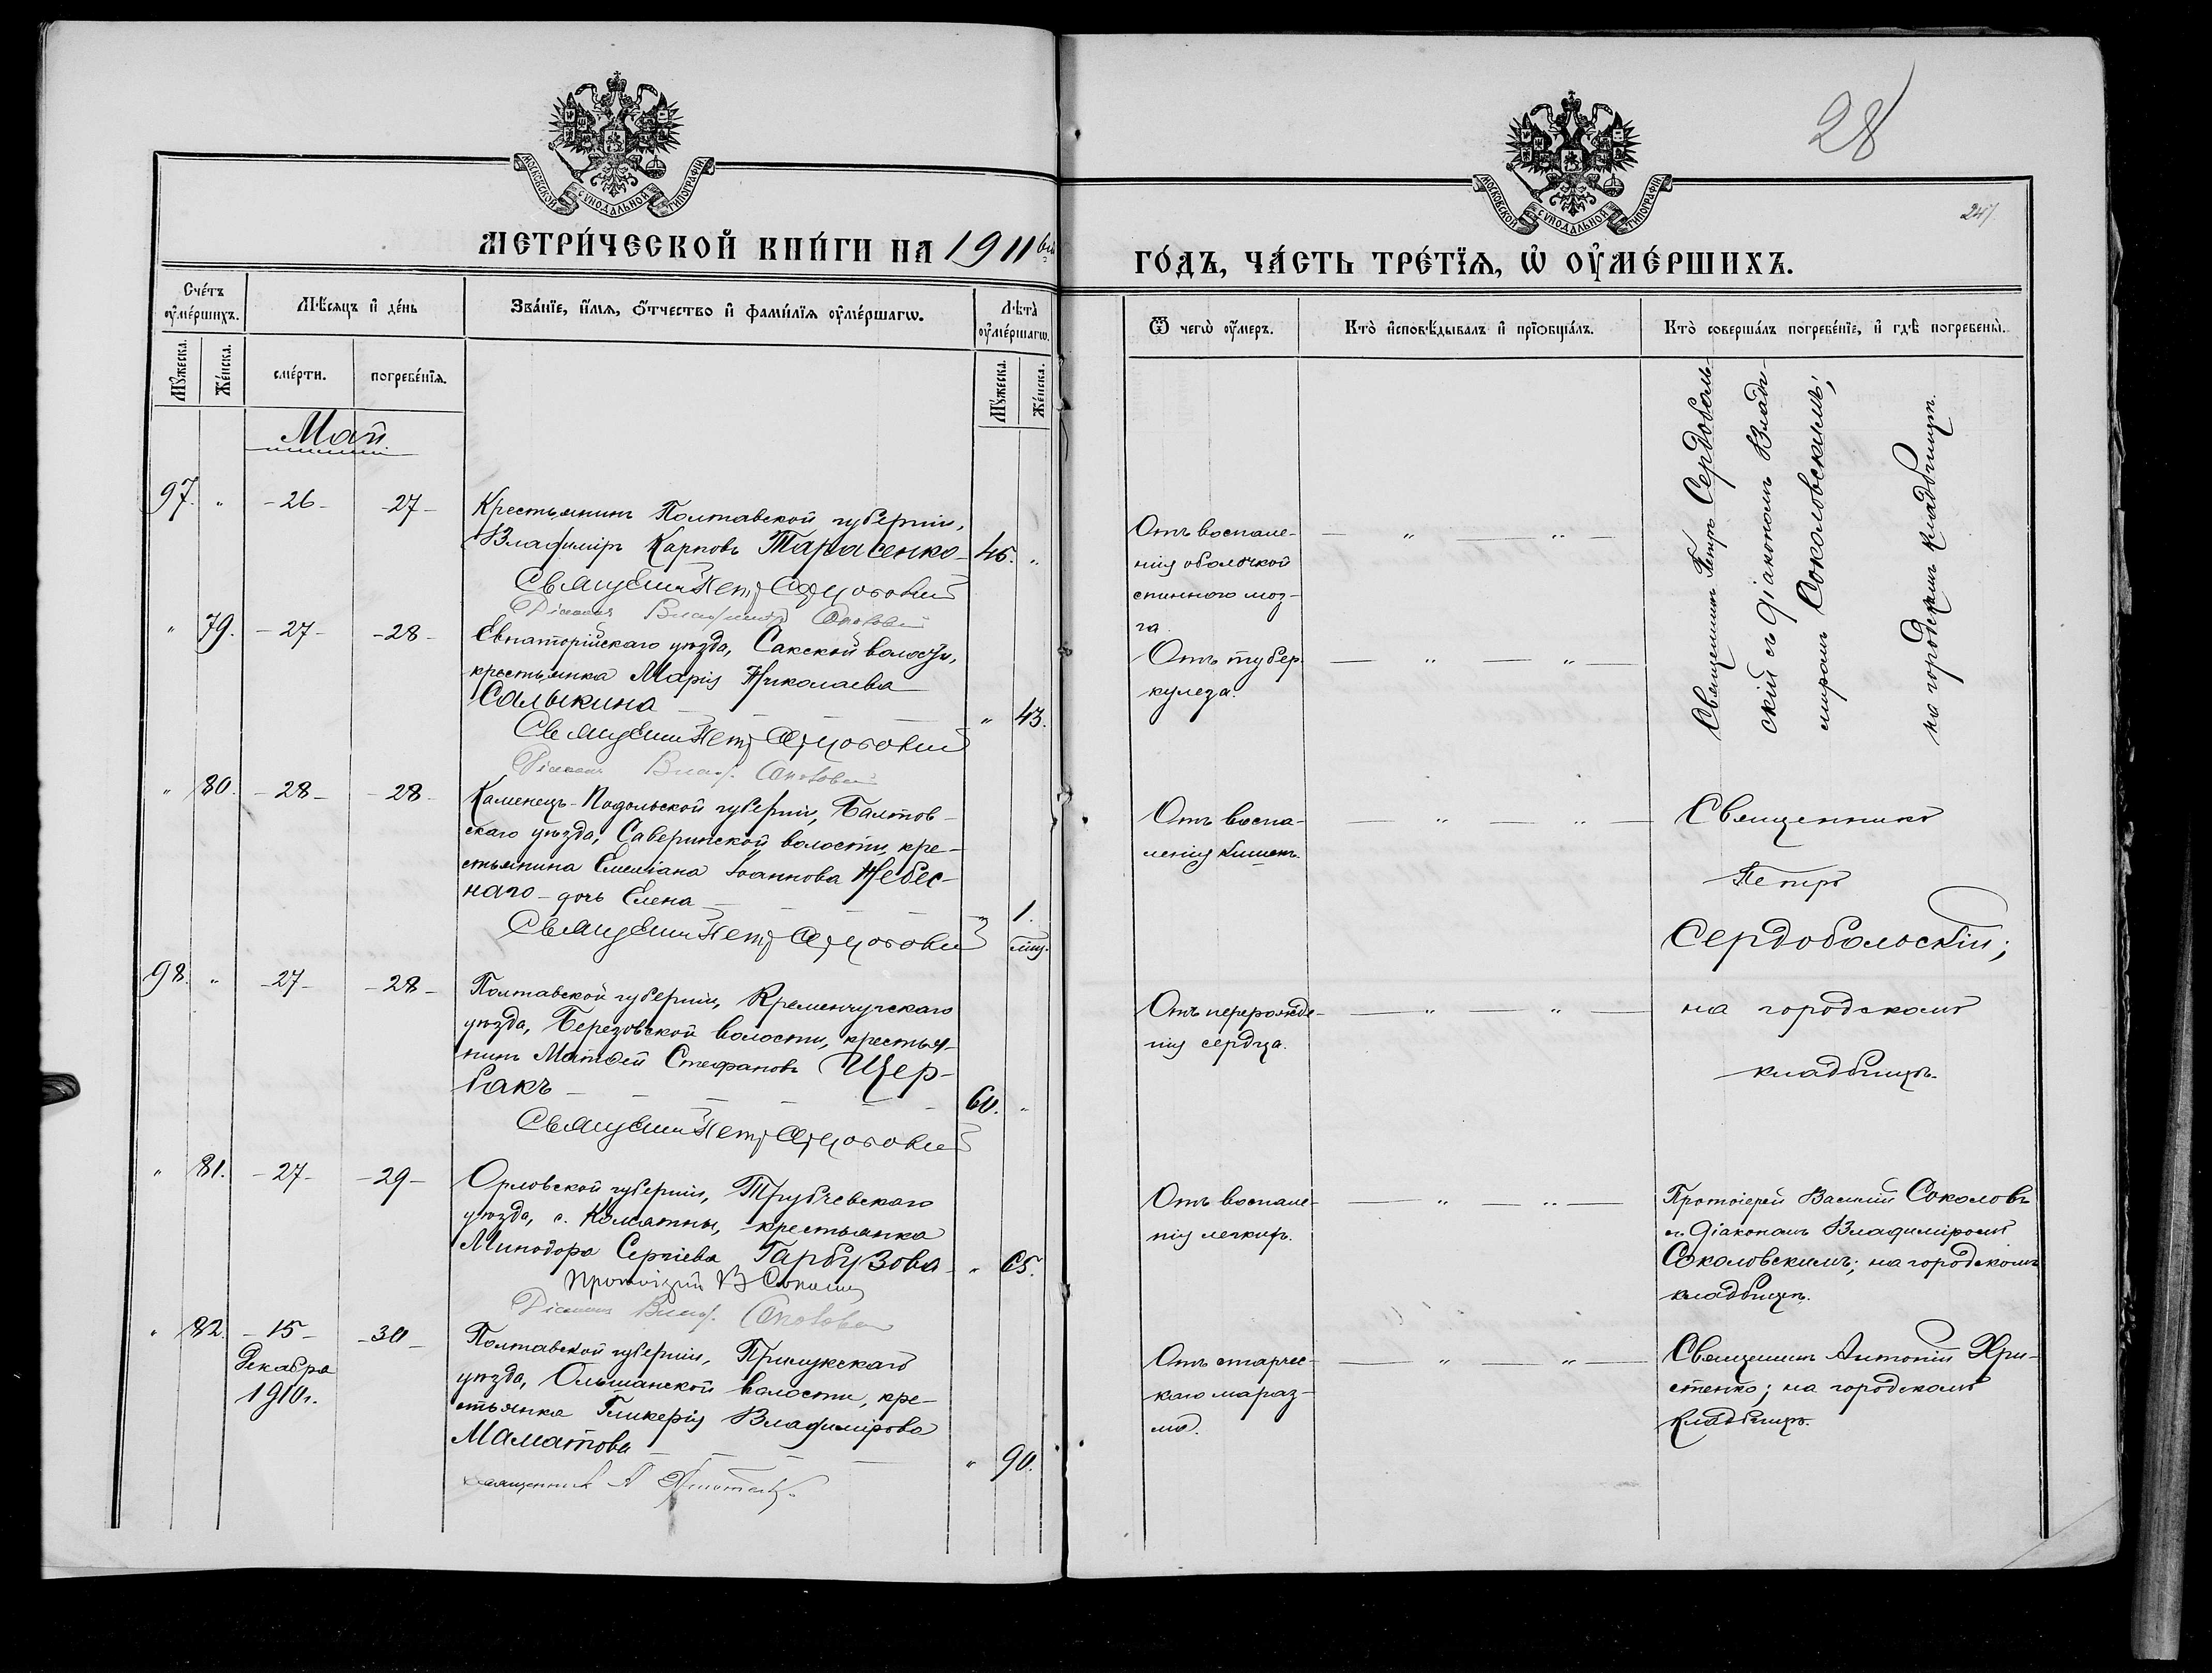 28
24
МОСКОВСКОЙ СѴНОДАЛЬНОЙ ТИПОГРАФІИ
МОСКОВСКОЙ СѴНОДАЛЬНОЙ ТИПОГРАФІИ
МЕТРИ́ЧЕСКОЙ КНИ́ГИ НА 1911 вый
ГО́ДЪ, ЧА́СТЬ ТРЕ́ТЇѦ, Ѡ ОУ҆МЕ́РШИХЪ.
Сче́тъ оу҆ме́ршихъ.
Мѣ́сѧцъ и҆ де́нь
Зва́нїе, и҆́мѧ, ѻ҆́тчество и҆ фами́лїѧ оу҆ме́ршагѡ.
Лѣ́та оу҆ме́ршагѡ.
Ѿ чегѡ̀ оу҆́меръ.
Кто̀ и҆сповѣ́дывалъ и҆ прїѡбща́лъ.
Кто̀ соверша́лъ погребе́нїе, и҆ гдѣ̀ погребены̀.
Мꙋ́жеска.
Же́нска.
сме́рти.
погребе́нїѧ.
Мꙋ́жеска.
Же́нска.
Май
97. " - 26 - - 27 -
Крестьянинъ Полтавской губерніи,
Владиміръ Карповъ Тарасенко - 45. "
Священникъ Петръ Сердобольскій
Діаконъ Владиміръ Соколовскій
Отъ воспале-
нія оболочкой
спинного моз-
га
Священникъ Петръ Сердоболь-
скій съ діакономъ Влади-
міромъ Соколовскимъ;
на городскомъ кладбищѣ.
" 79. - 27 - - 28 -
Евпаторійскаго уѣзда, Сакской волости,
крестьянка Марія Николаева
Салыкина " 43.
Священникъ Петръ Сердобольскій
Діаконъ Влад. Соколовскій
Отъ тубер-
кулеза.
" 80. - 28 - - 28 -
Каменецъ-Подольской губерніи, Балтов-
скаго уѣзда, Саверинской волости, кре-
стьянина Емиліана Іоаннова Небес-
наго - дочь Елена 1.
мѣс.
Священникъ Петръ Сердобольскій
Отъ воспа-
ленія кишекъ.
Священникъ
Петръ
Сердобольскій;
на городскомъ
кладбищѣ.
98. " - 27 - - 28 -
Полтавской губерніи, Кременчугскаго
уѣзда, Березовской волости, крестья-
нинъ Матѳей Стефановъ Щер-
бакъ 60. "
Священникъ Петръ Сердобольскій
Отъ перерожде-
нія сердца.
" 81. - 27 - - 29 -
Орловской губерніи, Трубчевскаго
уѣзда, с. крестьянка
Минодора Сергіева Гарбузова " 65.
Протоіерей В Соколовъ
Діаконъ Влад. Соколовскій
Отъ воспале-
нія легкихъ.
Протоіерей Василій Соколовъ
съ діакономъ Владиміромъ
Соколовскимъ; на городскомъ
кладбищѣ.
" 82. - 15 - - 30 -
Декабря
1910г.
Полтавской губерніи, Прилукскаго
уѣзда, Ольшанской волости, кре-
стьянка Гликерія Владимірова
Маматова " 90.
священникъ А Христенко
Отъ старчес-
каго мараз-
ма.
Священникъ Антоній Хри-
стенко; на городскомъ
кладбищѣ.